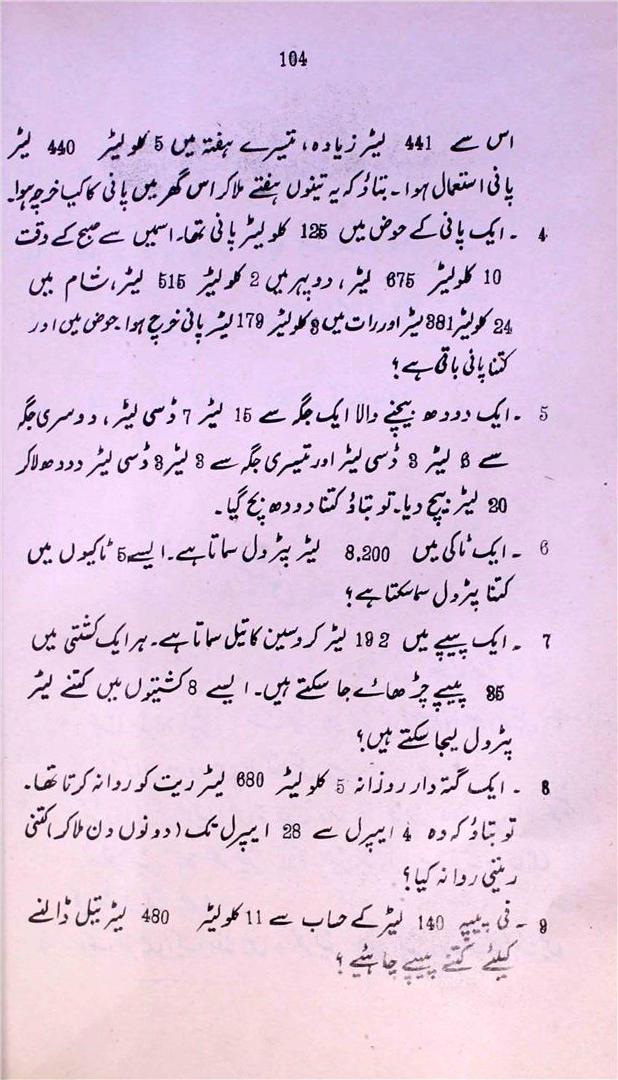 104
اس سے 441 لیٹر زیادہ، تیسرے ہفتہ میں 5 کلولیٹر 440 لیٹر
پانی استعمال ہوا۔ بتاؤ کہ یہ تینوں ہفتے ملاکر اس گھر میں پانی کا کیا خرچ ہوا۔
4 ۔ ایک پانی کے حوض میں 125 کلو لیٹر پانی تھا۔ اسمیں سے صبح کے وقت
10 کلولیٹر 675 لیٹر، دوپہر میں 2 کلولیٹر 515 لیٹر، شام میں
24 کلولیٹر 381 لیٹر اور رات میں 8 کلولیٹر 179 لیٹر پانی خرچ ہوا۔ حوض میں اور
کتنا پانی باقی ہے؟
5 ۔ ایک دودھ بیچنے والا ایک جگہ سے 15 لیٹر 7 ڈسی لیٹر، دوسری جگہ
سے 6 لیٹر 3 ڈسی لیٹر اور تیسری جگہ سے 3 لیٹر 3 ڈسی لیٹر دودھ لاکر
20 لیٹر بیچ دیا۔ تو بتاؤ کتنا دودھ بچ گیا۔
6 ۔ ایک ٹاکی میں 8.200 لیٹر پٹرول سماتا ہے۔ ایسے 5 ٹاکیوں میں
کتنا پٹرول سما سکتا ہے؟
7 ۔ ایک پیپے میں 192 لیٹر کروسین کا تیل سماتا ہے۔ ہر ایک کشتی میں
35 پیپے چڑھائے جا سکتے ہیں۔ ایسے 8 کشتیوں میں کتنے لیٹر
پٹرول لیجا سکتے ہیں؟
8 ۔ ایک گتہ دار روزانہ 5 کلولیٹر 680 لیٹر ریت کو روانہ کرتا تھا۔
تو بتاؤ کہ وہ 4 اپریل سے 28 اپریل تک (دونوں دن ملاکر) کتنی
ریتی روانہ کیا؟
9 ۔ فی پیپہ 140 لیٹر کے حساب سے 11 کلولیٹر 480 لیٹر تیل ڈالنے
کیلئے کتنے پیپے چاہئیے؟